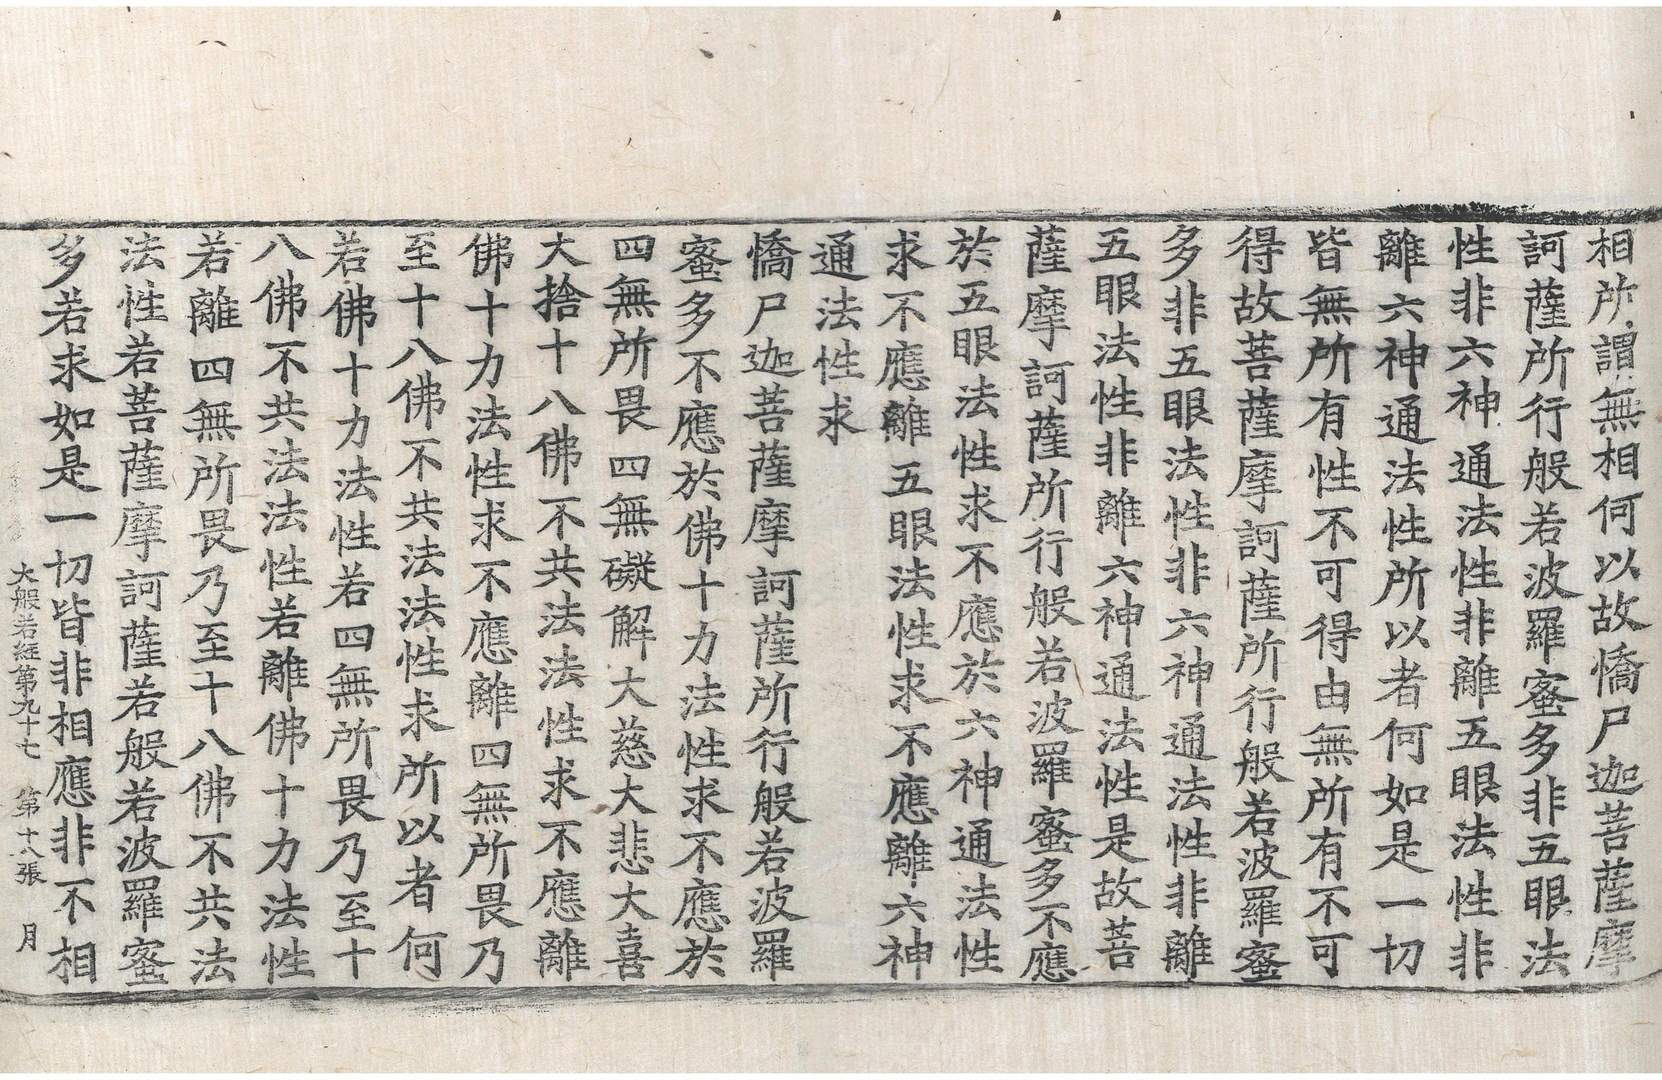 相所謂無相何以故憍尸迦菩薩摩
訶薩所行般若波羅蜜多非五眼法
性非六神通法性非離五眼法性非
離六神通法性所以者何如是一切
皆無所有性不可得由無所有不可
得故菩薩摩訶薩所行般若波羅蜜
多非五眼法性非六神通法性非離
五眼法性非離六神通法性是故菩
薩摩訶薩所行般若波羅蜜多不應
於五眼法性求不應於六神通法性
求不應離五眼法性求不應離六神
通法性求
憍尸迦菩薩摩訶薩所行般若波羅
蜜多不應於佛十力法性求不應於
四無所畏四無礙解大慈大悲大喜
大捨十八佛不共法法性求不應離
佛十力法性求不應離四無所畏乃
至十八佛不共法法性求所以者何
若佛十力法性若四無所畏乃至十
八佛不共法法性若離佛十力法性
若離四無所畏乃至十八佛不共法
法性若菩薩摩訶薩若般若波羅蜜
多若求如是一切皆非相應非不相
大般若経第九十七 第十八張 月